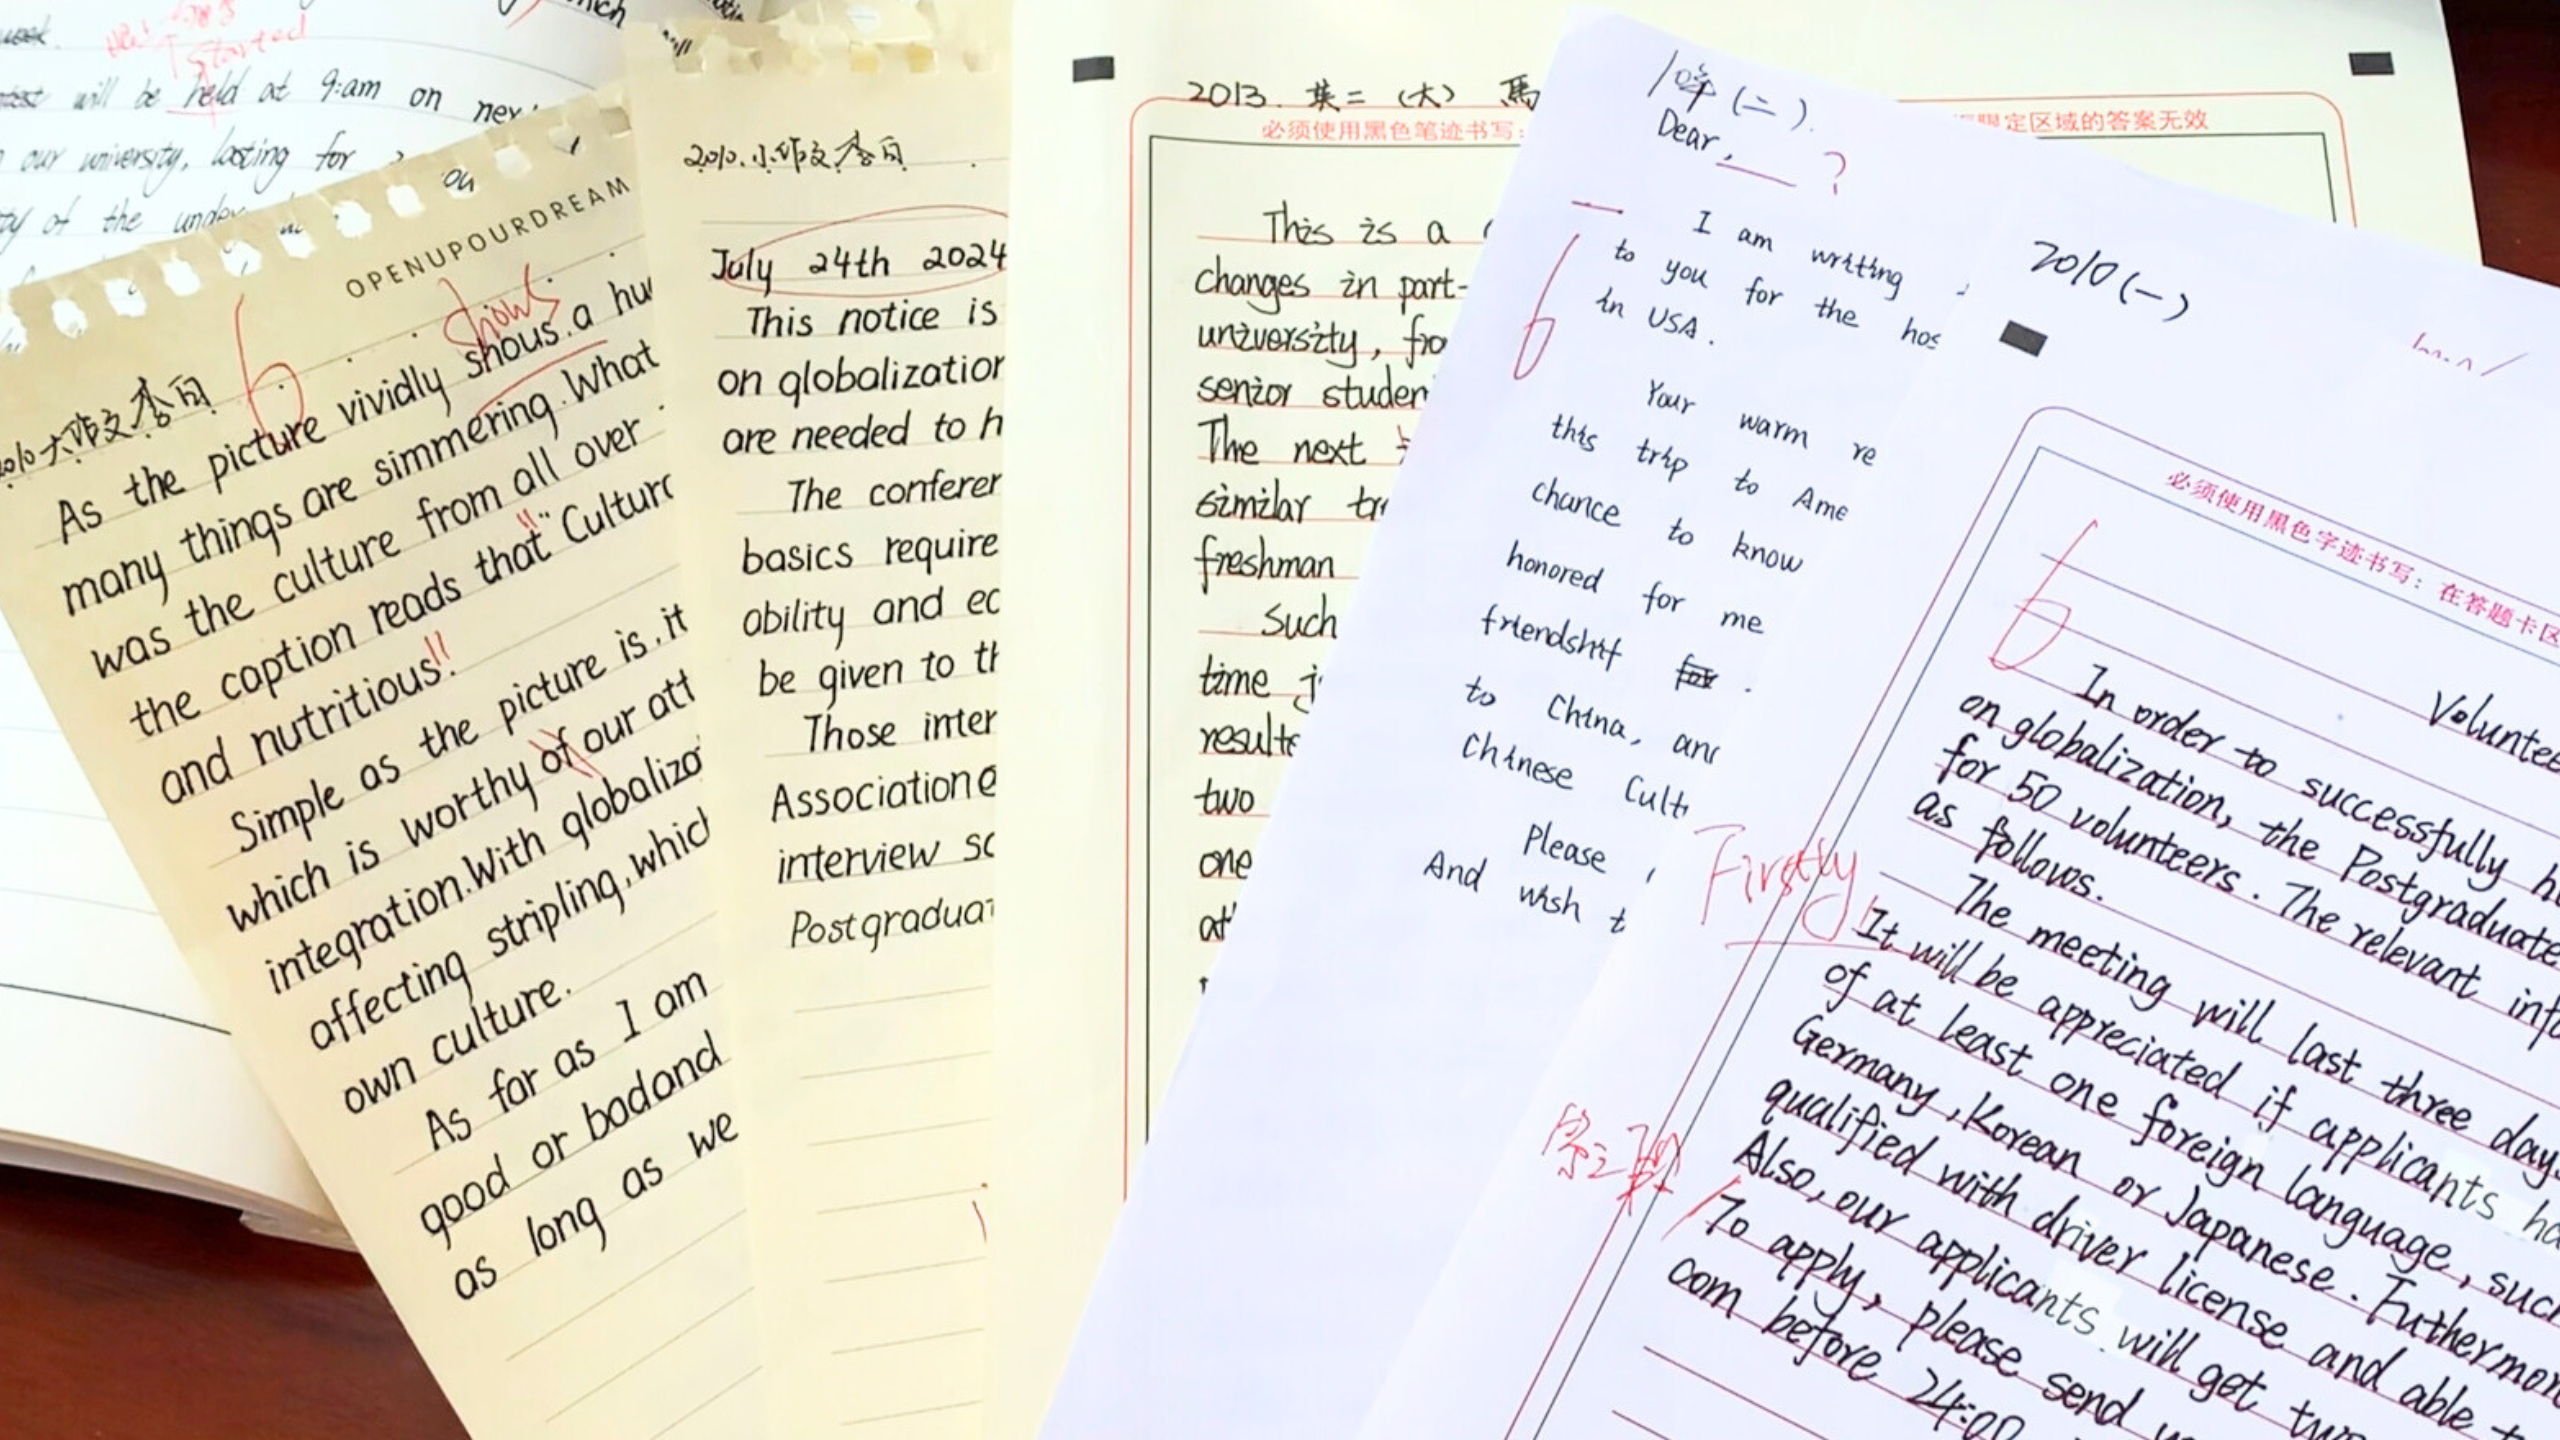 week.
started
will be held at 9:am on nex
our university, lasting for
ty of the under
OPENUPOURDREAM
6
shows
2010大作文李白
As the picture vividly shous a hu
many things are simmering. What
was the culture from all over
the caption reads that " Cultur
and nutritious!
Simple as the picture is, it
which is worthy of our att
integration. With globaliza
affecting stripling, which
own culture.
As far as I am
good or badand
as long as we
2010.小作文李白
July 24th 2024
This notice is
on globalization
are needed to h
The conferen
basics require
ability and ec
be given to th
Those inter
Association a
interview sc
Postgraduat
2013. 英二 (大) 馬
必须使用黑色笔迹书写:
限定区域的答案无效
This is a
changes in part-
university, fro
senior studen
The next
similar tr
freshman
Such
time j
results
two
one
at
(二).
Dear, ?
6
I am writing
to you for the hos
in USA.
Your warm re
this trip to Ame
chance to know
honored for me
friendshif for .
to China, and
Chinese Cult
Please
And wish t
2010(一)
必须使用黑色字迹书写: 在答题卡区
6
Voluntee
In order to successfully h
on globalization, the Postgraduate
for 50 volunteers. The relevant info
as follows.
The meeting will last three days
Firstly
It will be appreciated if applicants ha
of at least one foreign language, such
Germany, Korean or Japanese. Futhermor
qualified with driver license and able t
Also, our applicants will get two
To apply, please send
com before 24:00